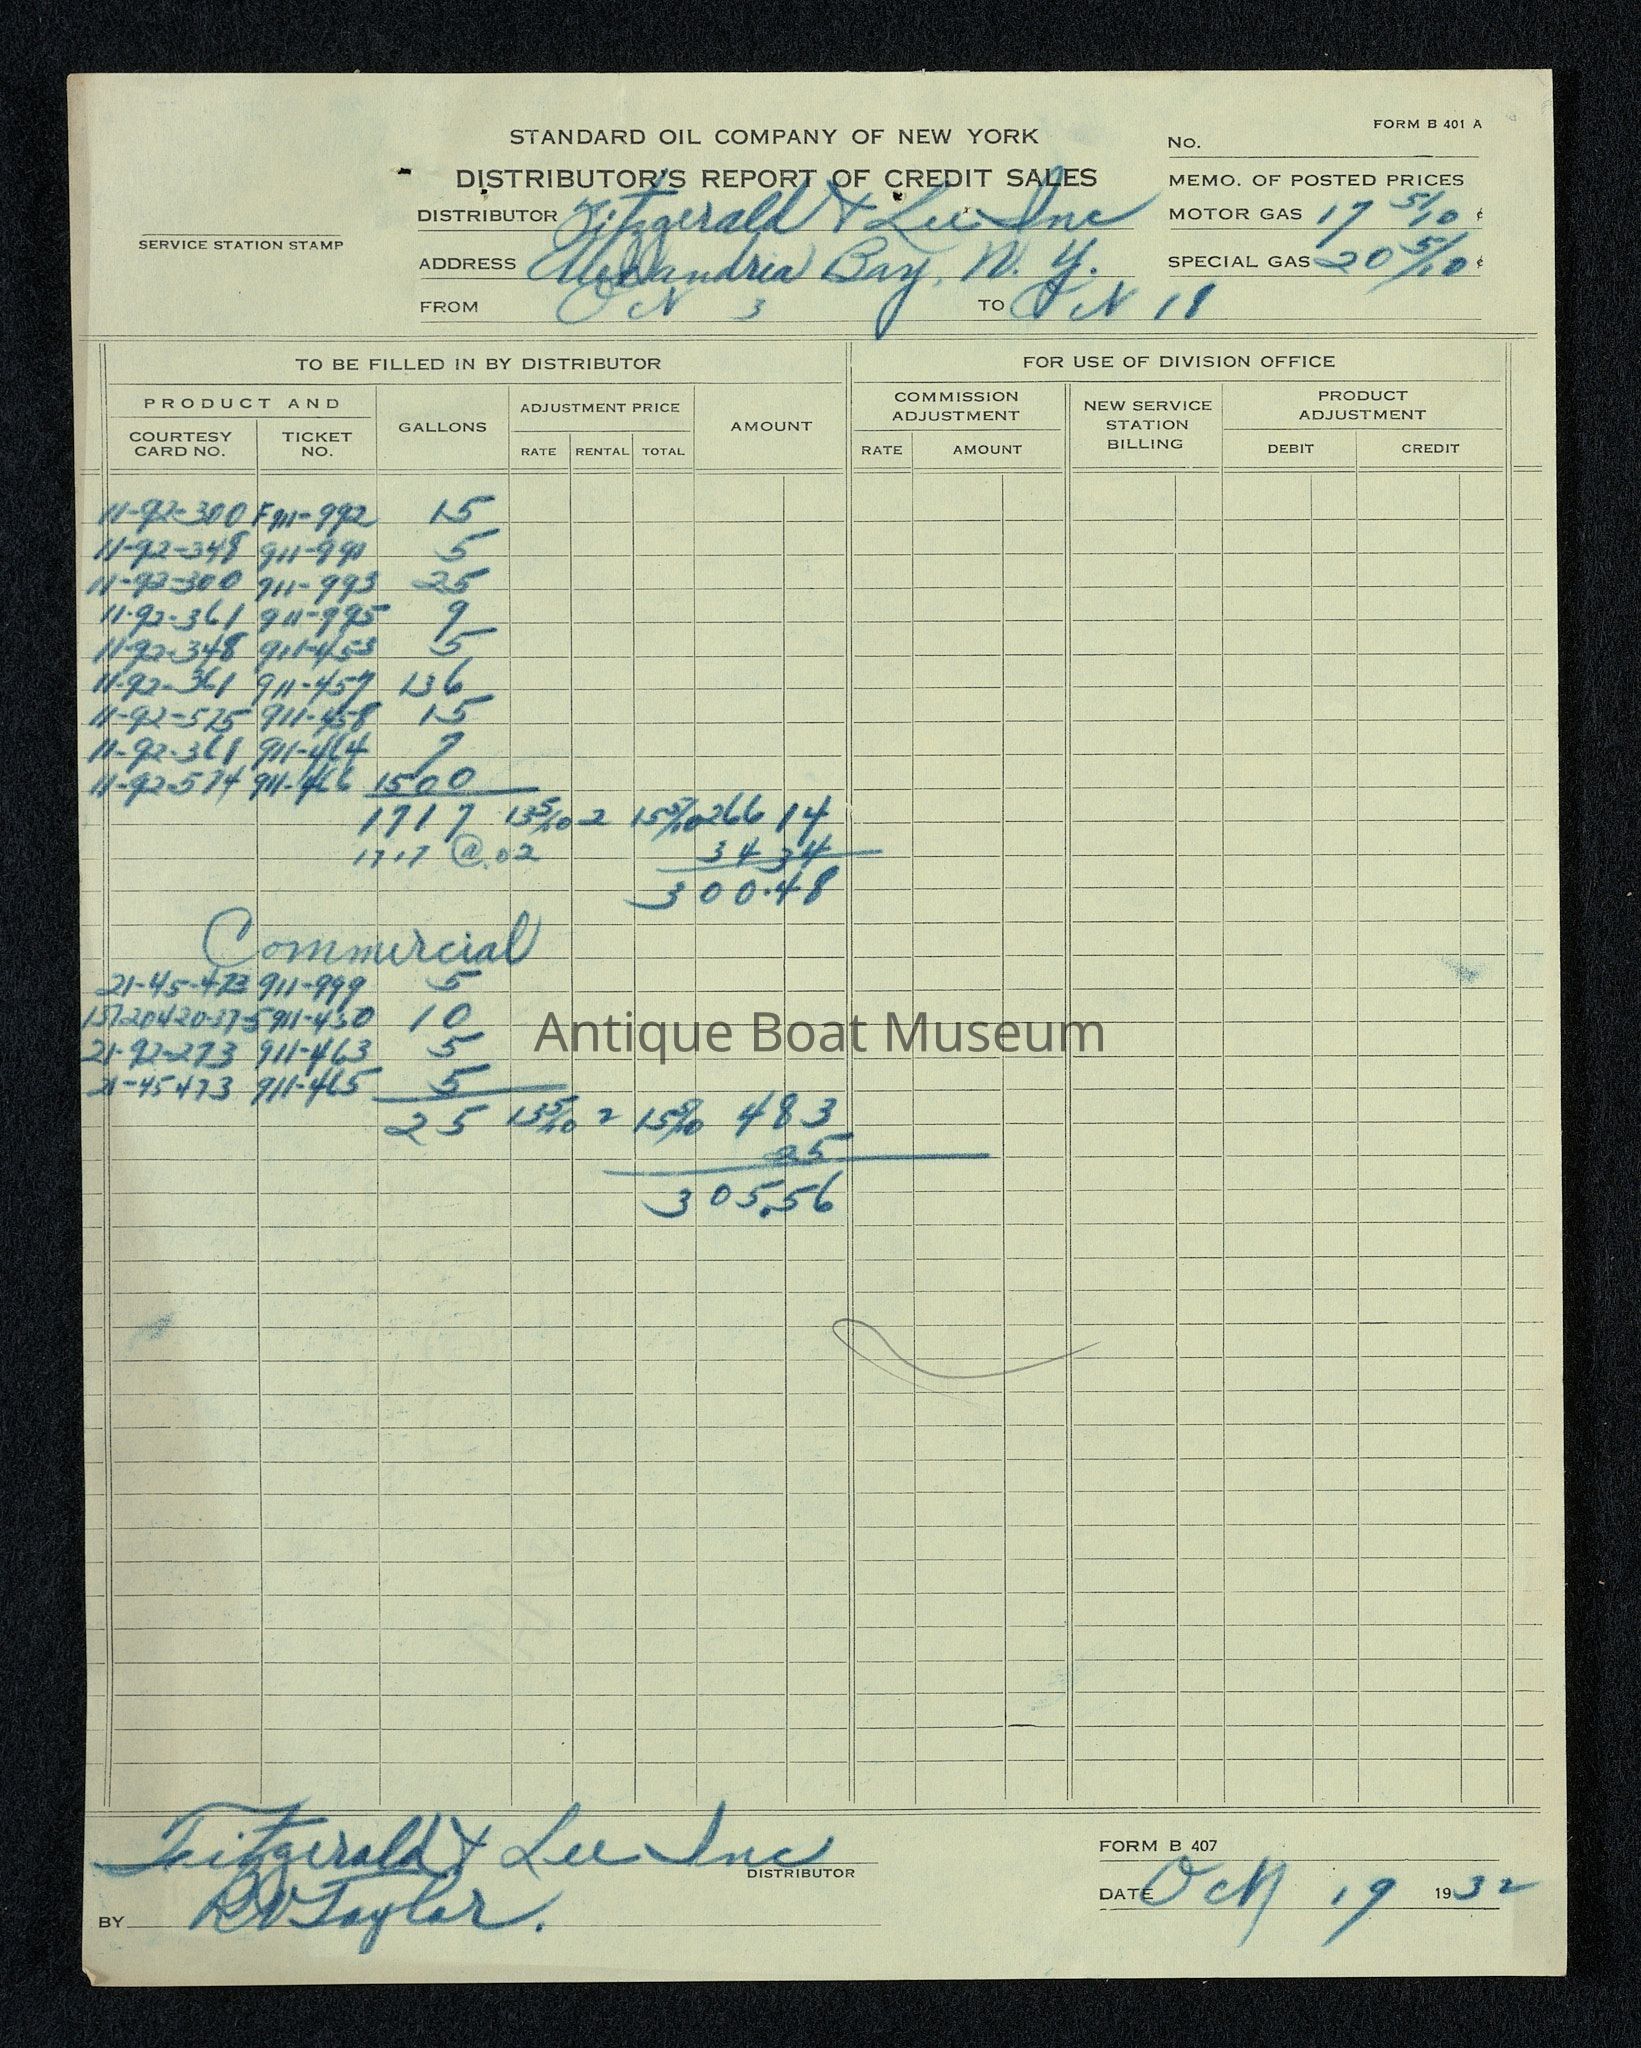 FORM B 401 A
STANDARD OIL COMPANY OF NEW YORK
No.
DISTRIBUTOR'S REPORT OF CREDIT SALES
MEMO. OF POSTED PRICES
DISTRIBUTOR Fitzgerald & Lee Inc
MOTOR GAS 17 5/10 ¢
SERVICE STATION STAMP
ADDRESS Alexandria Bay, N. Y.
SPECIAL GAS 20 5/10 ¢
FROM Oct 3 TO Oct 18
TO BE FILLED IN BY DISTRIBUTOR
FOR USE OF DIVISION OFFICE
PRODUCT AND
COURTESY CARD NO.
TICKET NO.
GALLONS
ADJUSTMENT PRICE
RATE RENTAL TOTAL
AMOUNT
COMMISSION ADJUSTMENT
RATE AMOUNT
NEW SERVICE STATION BILLING
PRODUCT ADJUSTMENT
DEBIT CREDIT
11-92-300 F911-992 15
11-92-348 911-991 5
11-92-300 911-993 25
11-92-361 911-995 9
11-92-348 911-453 5
11-92-361 911-457 136
11-92-575 911-458 15
11-92-361 911-464 7
11-92-574 911-466 1500
1717 13 5/10 2 15 5/10 266 14
1717 @ .02 34 34
300.48
Commercial
21-45-473 911-999 5
911-430 10
21-92-273 911-463 5
21-45473 911-465 5
25 13 5/10 2 15 5/10 4 83
25
305.56
Antique Boat Museum
Fitzgerald & Lee Inc
DISTRIBUTOR
FORM B 407
BY R V Taylor.
DATE Oct 19 1932